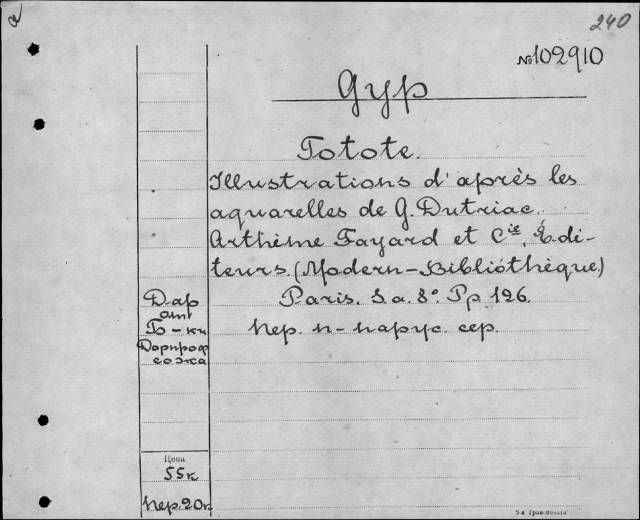 240
№102910
Gyp
Totote.
Illustrations d'après les
aquarelles de G. Dutriac.
Arthème Fayard et Cie, Édi-
teurs. (Modern-Bibliothèque)
Paris. S. a. 8°. Pp. 126.
пер. п-парус. сер.
Дар
от
Б-ки
Дорпроф
сожа
Цена
55к
пер. 20к